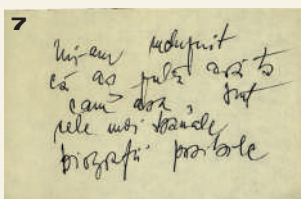 7
Mi-am închipuit
că aș putea arăta
cam așa, sunt
cele mai banale
biografii posibile